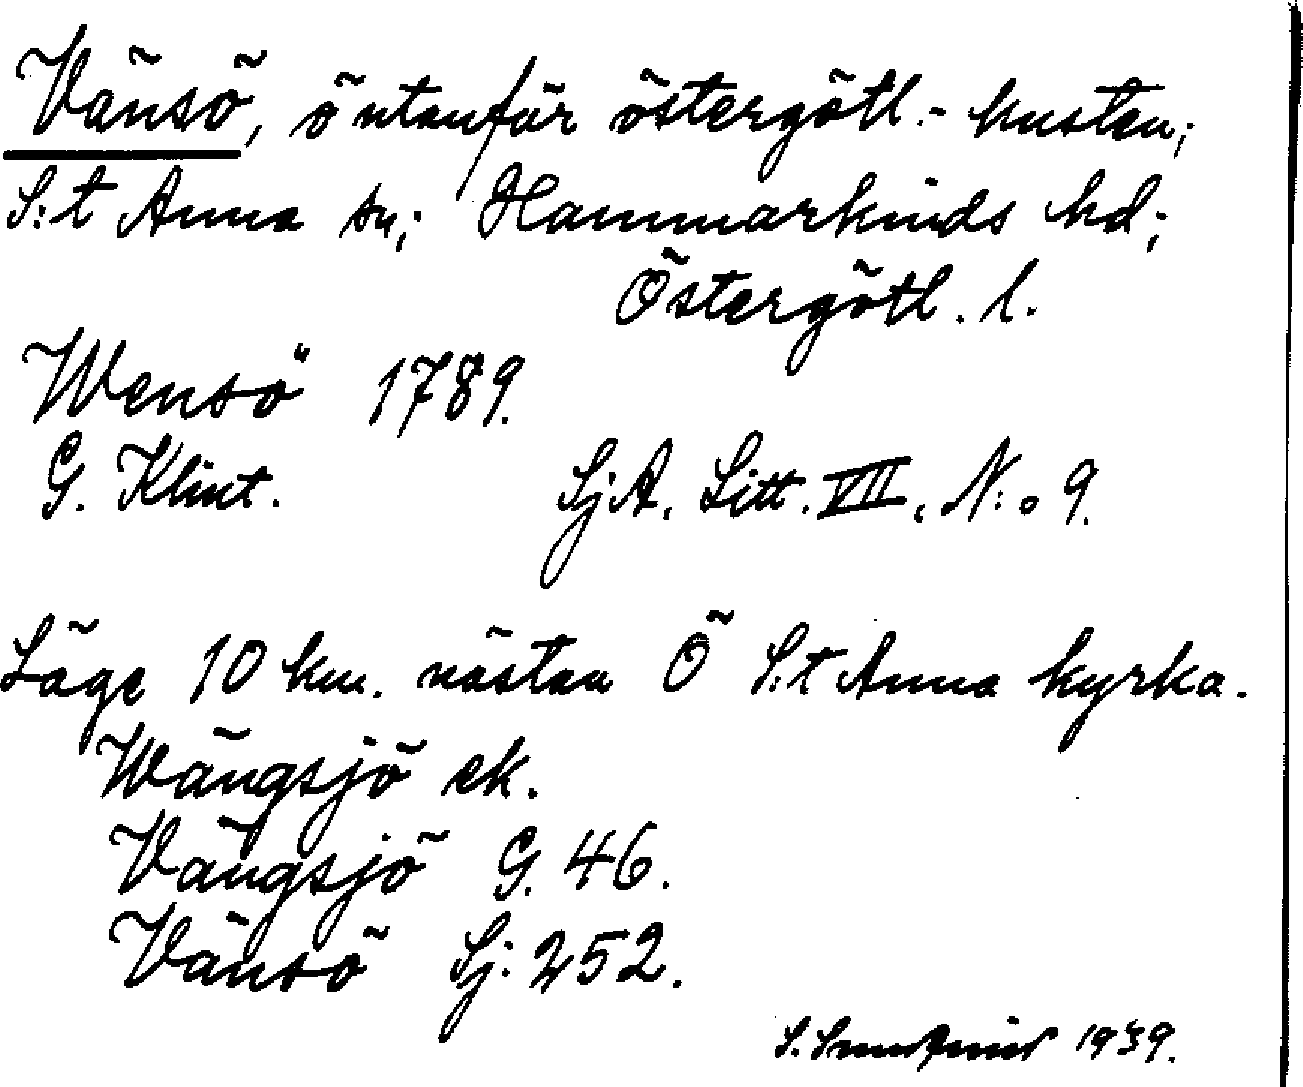 Vänsö, ö utanför östergötl.- kusten;
S:t Anna sn; Hammarkinds hd;
Östergötl. l.
Wensö 1789.
G. Klint. SjA. Litt. VII. N:o 9.
Läge 10 km. nästan Ö S:t Anna kyrka.
Wängsjö ek.
Vängsjö G. 46.
Vänsö Sj: 252.
S. 1939.